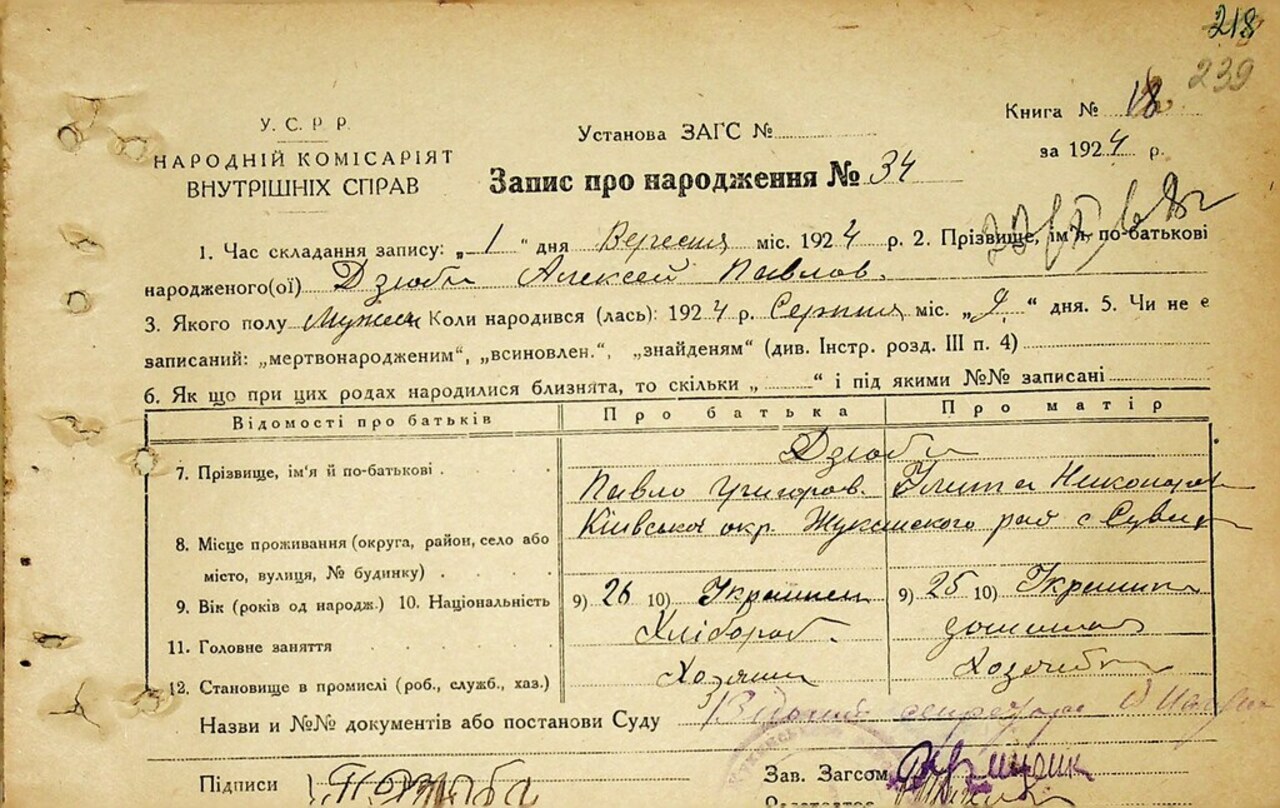 218
239
У. С. Р Р.
НАРОДНІЙ КОМІСАРІЯТ
ВНУТРІШНІХ СПРАВ
Установа ЗАГС №
Книга № 18
за 1924 р.
Запис про народження № 34
1. Час складання запису: „1“ дня Вересня міс. 1924 р. 2. Прізвище, ім'я, по-батькові
народженого(ої) Дзюба Алексей Павлов.
3. Якого полу Мужск Коли народився (лась): 1924 р. Серпня міс. „9“ дня. 5. Чи не є
записаний: „мертвонародженим“, „всиновлен.“, „знайденям“ (див. Інстр. розд. III п. 4)
6. Як що при цих родах народилися близнята, то скільки „ “ і під якими №№ записані
Відомості про батьків Про батька Про матір
7. Прізвище, ім'я й по-батькові Дзюба
Павло Григоров. Никоноров
Київської окр. Жукинского рай с
8. Місце проживання (округа, район, село або
місто, вулиця, № будинку)
9. Вік (років од народж.) 10. Національність 9) 26 10) Украинец 9) 25 10) Украинка
11. Головне заняття Хлібороб. домашнє
12. Становище в промислі (роб., служб., хаз.) Хозяин
Назви и №№ документів або постанови Суду секретарь
Підписи П Дзюба Зав. Загсом